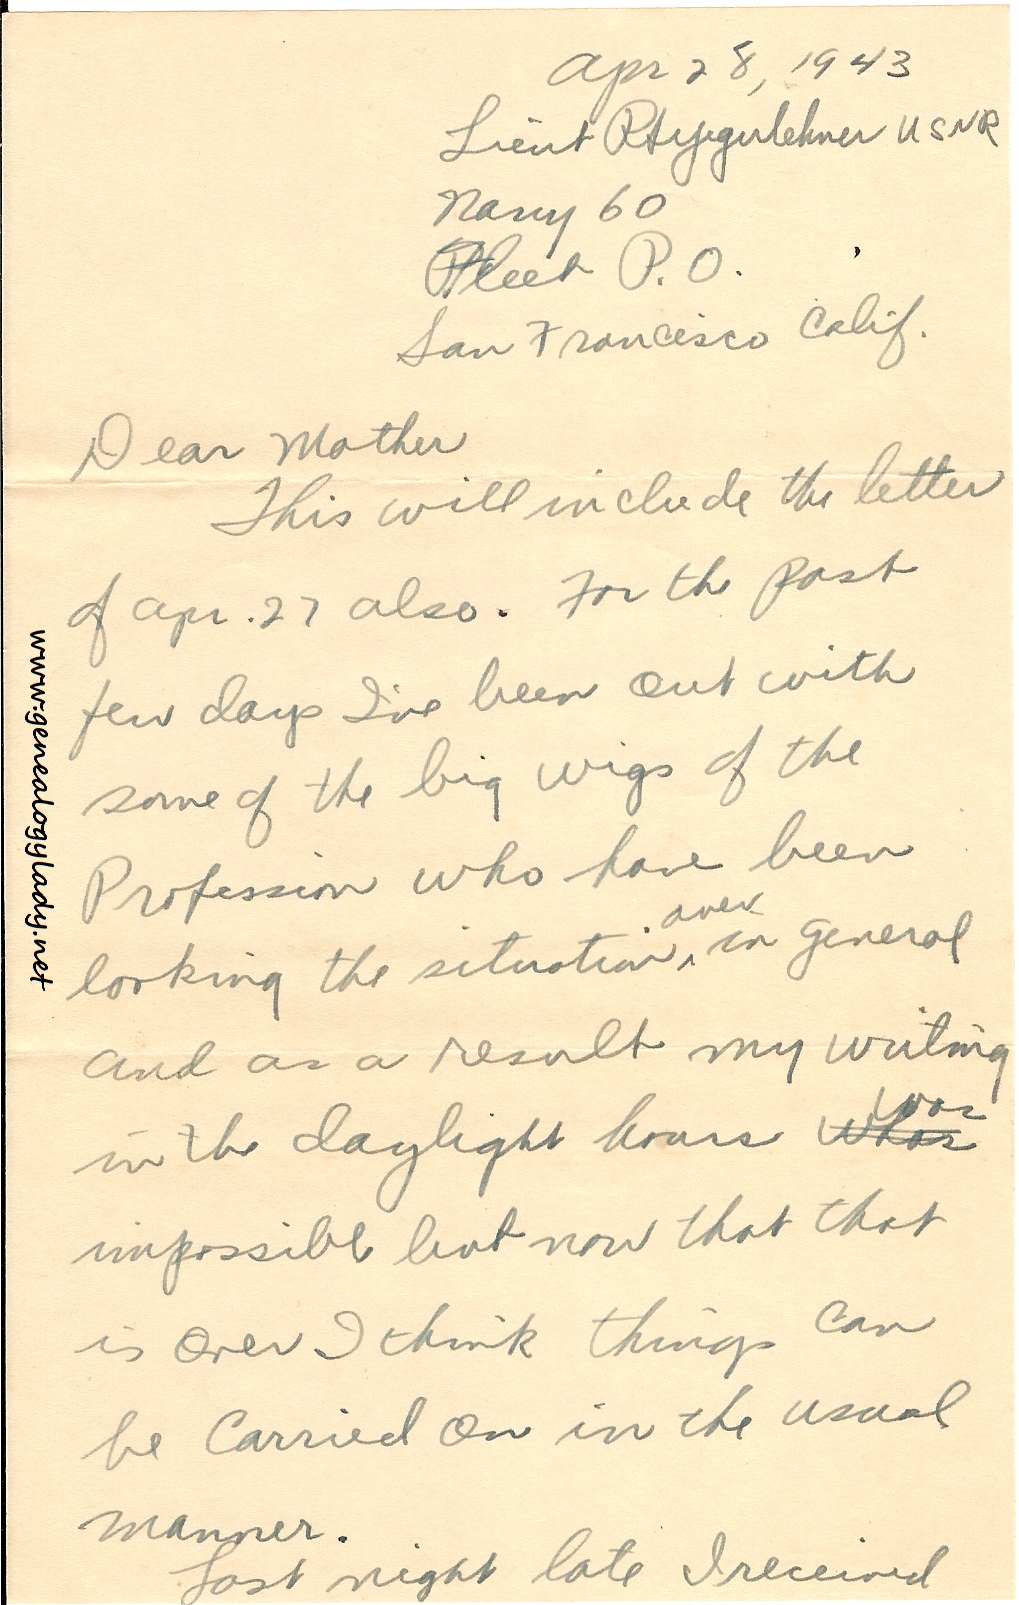 Apr 28, 1943
Lieut R H Yegerlehner USNR
Navy 60
Fleet P.O.
San Francisco Calif.
Dear Mother
This will include the letter
of Apr. 27 also. For the past
few days I've been out with
some of the big wigs of the
Profession who have been
looking the situation over in general
and as a result my writing
in the daylight hours whas was
impossible but now that that
is over I think things can
be carried on in the usual
manner.
Last night late I received
www.genealogylady.net